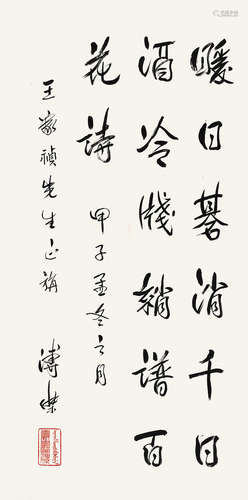 暖日碁消千日
酒冷牋綃譜百
花詩 甲子孟冬之月
王 禎先生正
溥傑